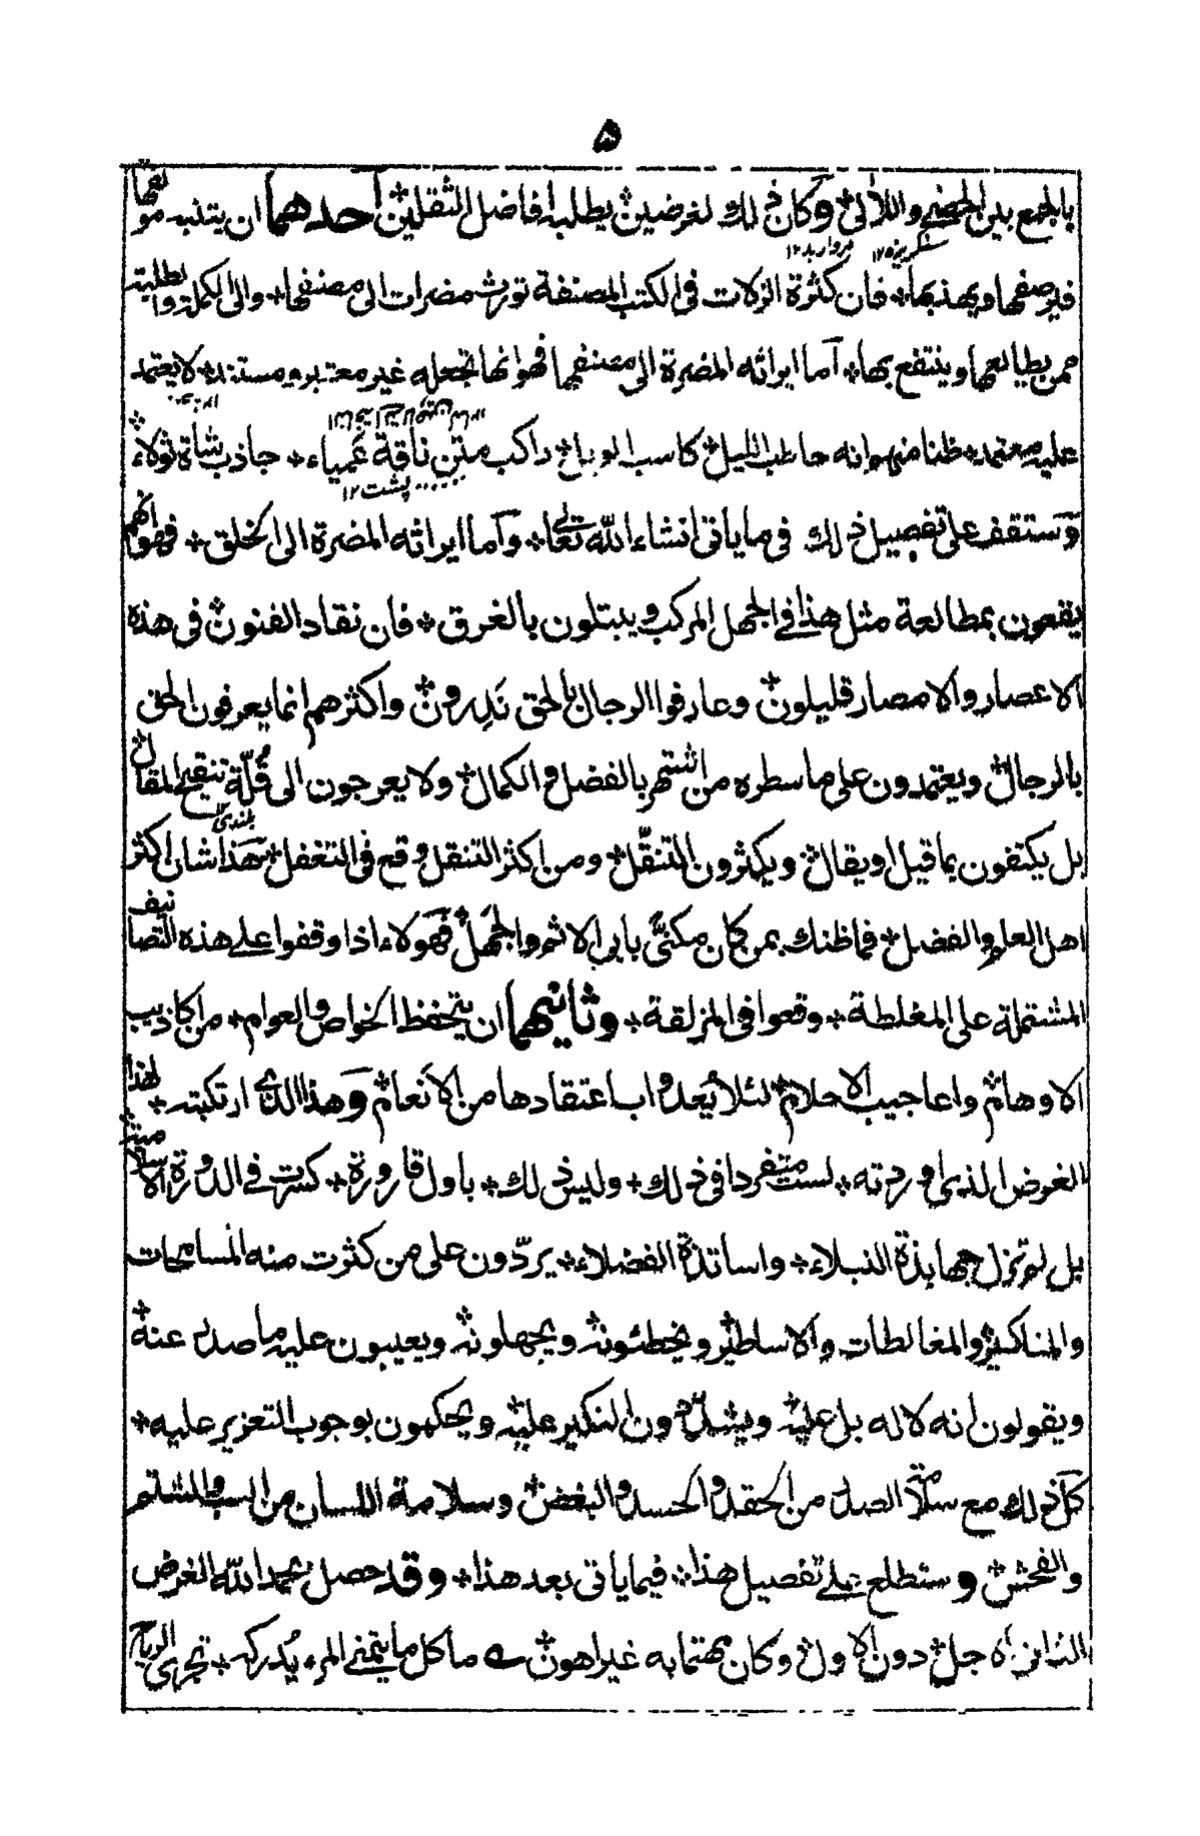 ۵
بالجمع بين الحصى واللآلى ٭ وكان ذلك لغرضين ٭ يطلبه افاضل الثقلين ٭ احدهما ان يتنبه مؤلفها
سنگريزه ١٢ مرواريد ١٢
فيرصفها ويهذبها ٭ فان كثرة الزلات فى الكتب المصنفة تورث مضرات الى مصنفها ٭ والى الكملة والطلبة
ممن يطالعها وينتفع بها ٭ آما ايراثه المضرة الى مصنفها فهو انها تجعله غير معتبر ومستند ٭ لا يعتمد
عليه معتمد ٭ ظنا منهم انه حاطب الليل ٭ كاسب الوبال ٭ راكب متن ناقة عمياء ٭ جاذب شاة ثولاء ٭
پشت ١٢
وستقف على تفصيل ذلك فى ما ياتى انشاء الله تعالى ٭ وآما ايراثه المضرة الى الخلق ٭ فهو انهم
يقعون بمطالعة مثل هذا فى الجهل المركب ويبتلون بالغرق ٭ فان نقاد الفنون فى هذه
الاعصار والامصار قليلون ٭ وعارفوا الرجال بالحق نَدِرون ٭ واكثرهم انما يعرفون الحق
بالرجال ٭ ويعتمدون على ما سطره من اشتهر بالفضل والكمال ٭ ولا يعرجون الى قُلّة تنقيح المقال ٭
بلندى ١٢
بل يكتفون بما قيل او يقال ٭ ويكثرون التنقّل ٭ ومن اكثر التنقل وقع فى التغفل ٭ هذا شان اكثر
اهل العلم والفضل ٭ فما ظنك بمن كان مكنىً بابى الاثم والجهل ٭ فهولاء اذا وقفوا على هذه التصانيف
المشتملة على المغلطة ٭ وقعوا فى المزلقة ٭ وثانيهما ان يتحفظ الخواص والعوام ٭ من اكاذيب
الاوهام ٭ واعاجيب الاحلام ٭ لئلا يُعد واب اعتقادها من الانعام ٭ وهذا الذى ارتكبته ٭ لهذا
الغرض الذى اوردته ٭ لست متفردا فى ذلك ٭ وليس ذلك ٭ باول قارورة ٭ كسرت فى الدورة الاسلامية ٭
بل لم تزل جهابذة النبلاء ٭ واساتذة الفضلاء ٭ يردّون على من كثرت منه المسامحات
والمناكير والمغالطات والاساطير ٭ ويخطئونه ٭ ويجهلونه ٭ ويعيبون عليه ما صدر عنه ٭
ويقولون انه لا له بل عليه ٭ ويشددون النكير عليه ٭ ويحكمون بوجوب التعزير عليه ٭
كل ذلك مع سلامة الصدر من الحقد والحسد والبغض ٭ وسلامة اللسان من السب والشتم
والفحش ٭ وستطلع على تفصيل هذا ٭ فيما ياتى بعد هذا ٭ وقد حصل بحمد الله الغرض
الثانى الاجل ٭ دون الاول ٭ وكان مهتما به غير اهون ٭ ے ما كل ما يتمنى المرء يُدركه ٭ تجرى الرياح